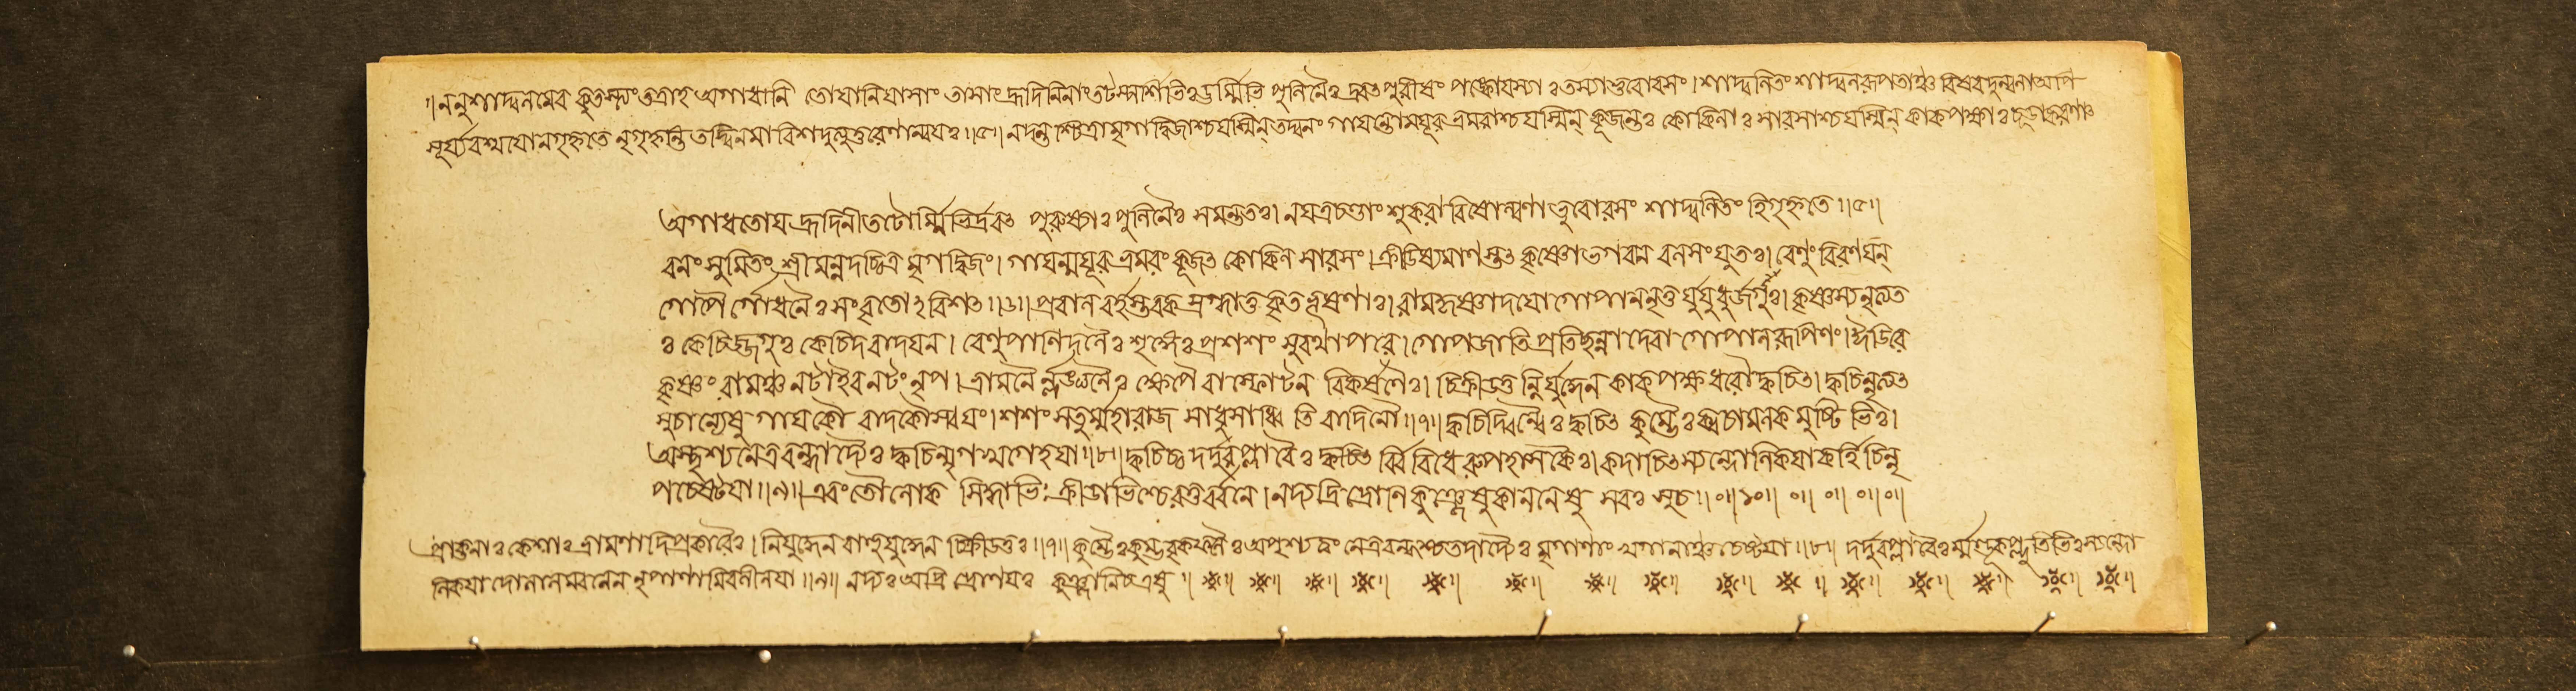 ।। ননুশাদ্বলমেব কুতস্ত্যং তত্রাহ অগাধানি তোযানিযাসাং তাসাং হ্রদিনিনাং তটস্পর্শিভিঃ ঊর্ম্মিভিঃ পুলিনৈঃ দ্রবৎ পুরীষং পঙ্কোযস্যাঃ তস্যাভুবোরসং। শাদ্বলিতং শাদ্বলরূপতাঞ্চ বিষবদুল্বনাঅপি
সূর্য্যরশ্ময়োনগৃহ্নতে নগৃহ্নন্তি তদ্বনমাবিশদুত্যুত্তরেণান্বযঃ ।।৫।। নদন্তশ্চিত্রামৃগাদ্বিজাশ্চযস্মিন্ তদ্বনং গাযন্তোময়ূর ভ্রমরাশ্চযস্মিন্ কূজন্তঃ কোকিলাঃ সারসাশ্চযস্মিন্ কাকপক্ষাঃ চূড়াকরণাৎ
অগাধতোয হ্রদিনীতটোর্ম্মিভির্দ্রবৎ পুরুষ্যাঃ পুলিনৈঃ সমন্ততঃ। নযত্রচণ্ডাংশুকরা বিষোল্বণা ভুবোরসং শাদ্বলিতং হিগৃহ্নতে ।।৫।।
বনং সুমিতং শ্রীমন্নদচ্চিত্র মৃগদ্বিজং। গাযন্ময়ূর ভ্রমরং কূজৎ কোকিল সারসং। ক্রীডিষ্যমাণস্তৎ কৃষ্ণোভগবান বলসংযুতঃ। বেণুং বিরণযন্
গোপৈ র্গোধনৈঃ সংবৃতোঽবিশৎ ।।৬।। প্রবাল বর্হস্তবক স্রগ্ধাতু কৃত ভূষণাঃ। রামকৃষ্ণাদযোগোপাননৃতু র্যুযুধুর্জগুঃ। কৃষ্ণস্যনৃত্যত
ঃ কেচিজ্জগুঃ কেচিদবাদযন। বেণুপাণিদলৈঃ শৃঙ্গৈঃ প্রশশং সুরথাপরে। গোপজাতি প্রতিছন্নাদেবা গোপালরূপিণং। ঈডিরে
কৃষ্ণং রামঞ্চ নটাইবনটং নৃপ। ভ্রামনৈ র্লঙ্ঘনৈঃ ক্ষেপৈ রাস্ফোটন বিকর্ষণৈঃ। চিক্রীডতু র্নিযুদ্ধেন কাকপক্ষ ধরৌক্বচিৎ। ক্বচিন্নৃত্যৎ
সুচান্যেষু গাযকৌ বাদকৌস্বযং। শশং সতুর্ম্মহারাজ সাধুসাধ্বি তি বাদিনৌ ।।৭।। ক্বচিদ্বিল্বৈঃ ক্বচিৎ কুম্ভৈঃ ক্বচামলক মুষ্টি ভিঃ।
অস্পৃশ্যনেত্রবন্ধাদ্যৈঃ ক্বচিন্মৃগখগেহযা ।।৮।। ক্বচিচ্চ দর্দুরপ্লাবৈঃ ক্বচিৎ র্বিবিধৈ রুপহাসকৈঃ। কদাচিৎস্যন্দোলিকযাকর্হিচিন্নৃ
পচেষ্টযা ।।৯।। এবংতৌলোক সিদ্ধাভিঃ ক্রীডাভিশ্চেরতুর্বনে। নদ্যদ্রি দ্রোণি কুঞ্জেষুকাননেষু সরঃ সুচ ।।০।।১০।। ০।। ০।। ০।।০।।
প্রাক্তনাঃ কেশাঃ ভ্রামণাদিপ্রকারৈঃ। নিযুদ্ধেন বাহুযুদ্ধেন চিক্রীডতুঃ ।।৭।। কুম্ভৈঃকুম্ভবৃক্ষফলৈঃ অস্পৃশ্যত্বং নেত্রবন্ধশ্চতদাদ্যৈঃ মৃগাণাং খগানাঞ্চচেষ্টযা ।।৮।। দর্দুরপ্লাবৈঃর্ম্মণ্ডূকপ্লুতিভিঃস্যন্দো
লিকযা দোলালম্বনেন নৃপাণামিবলীলযা ।।৯।। নদ্যঃ অদ্রি দ্রোণযঃ কুঞ্জানিচতেষু ।।